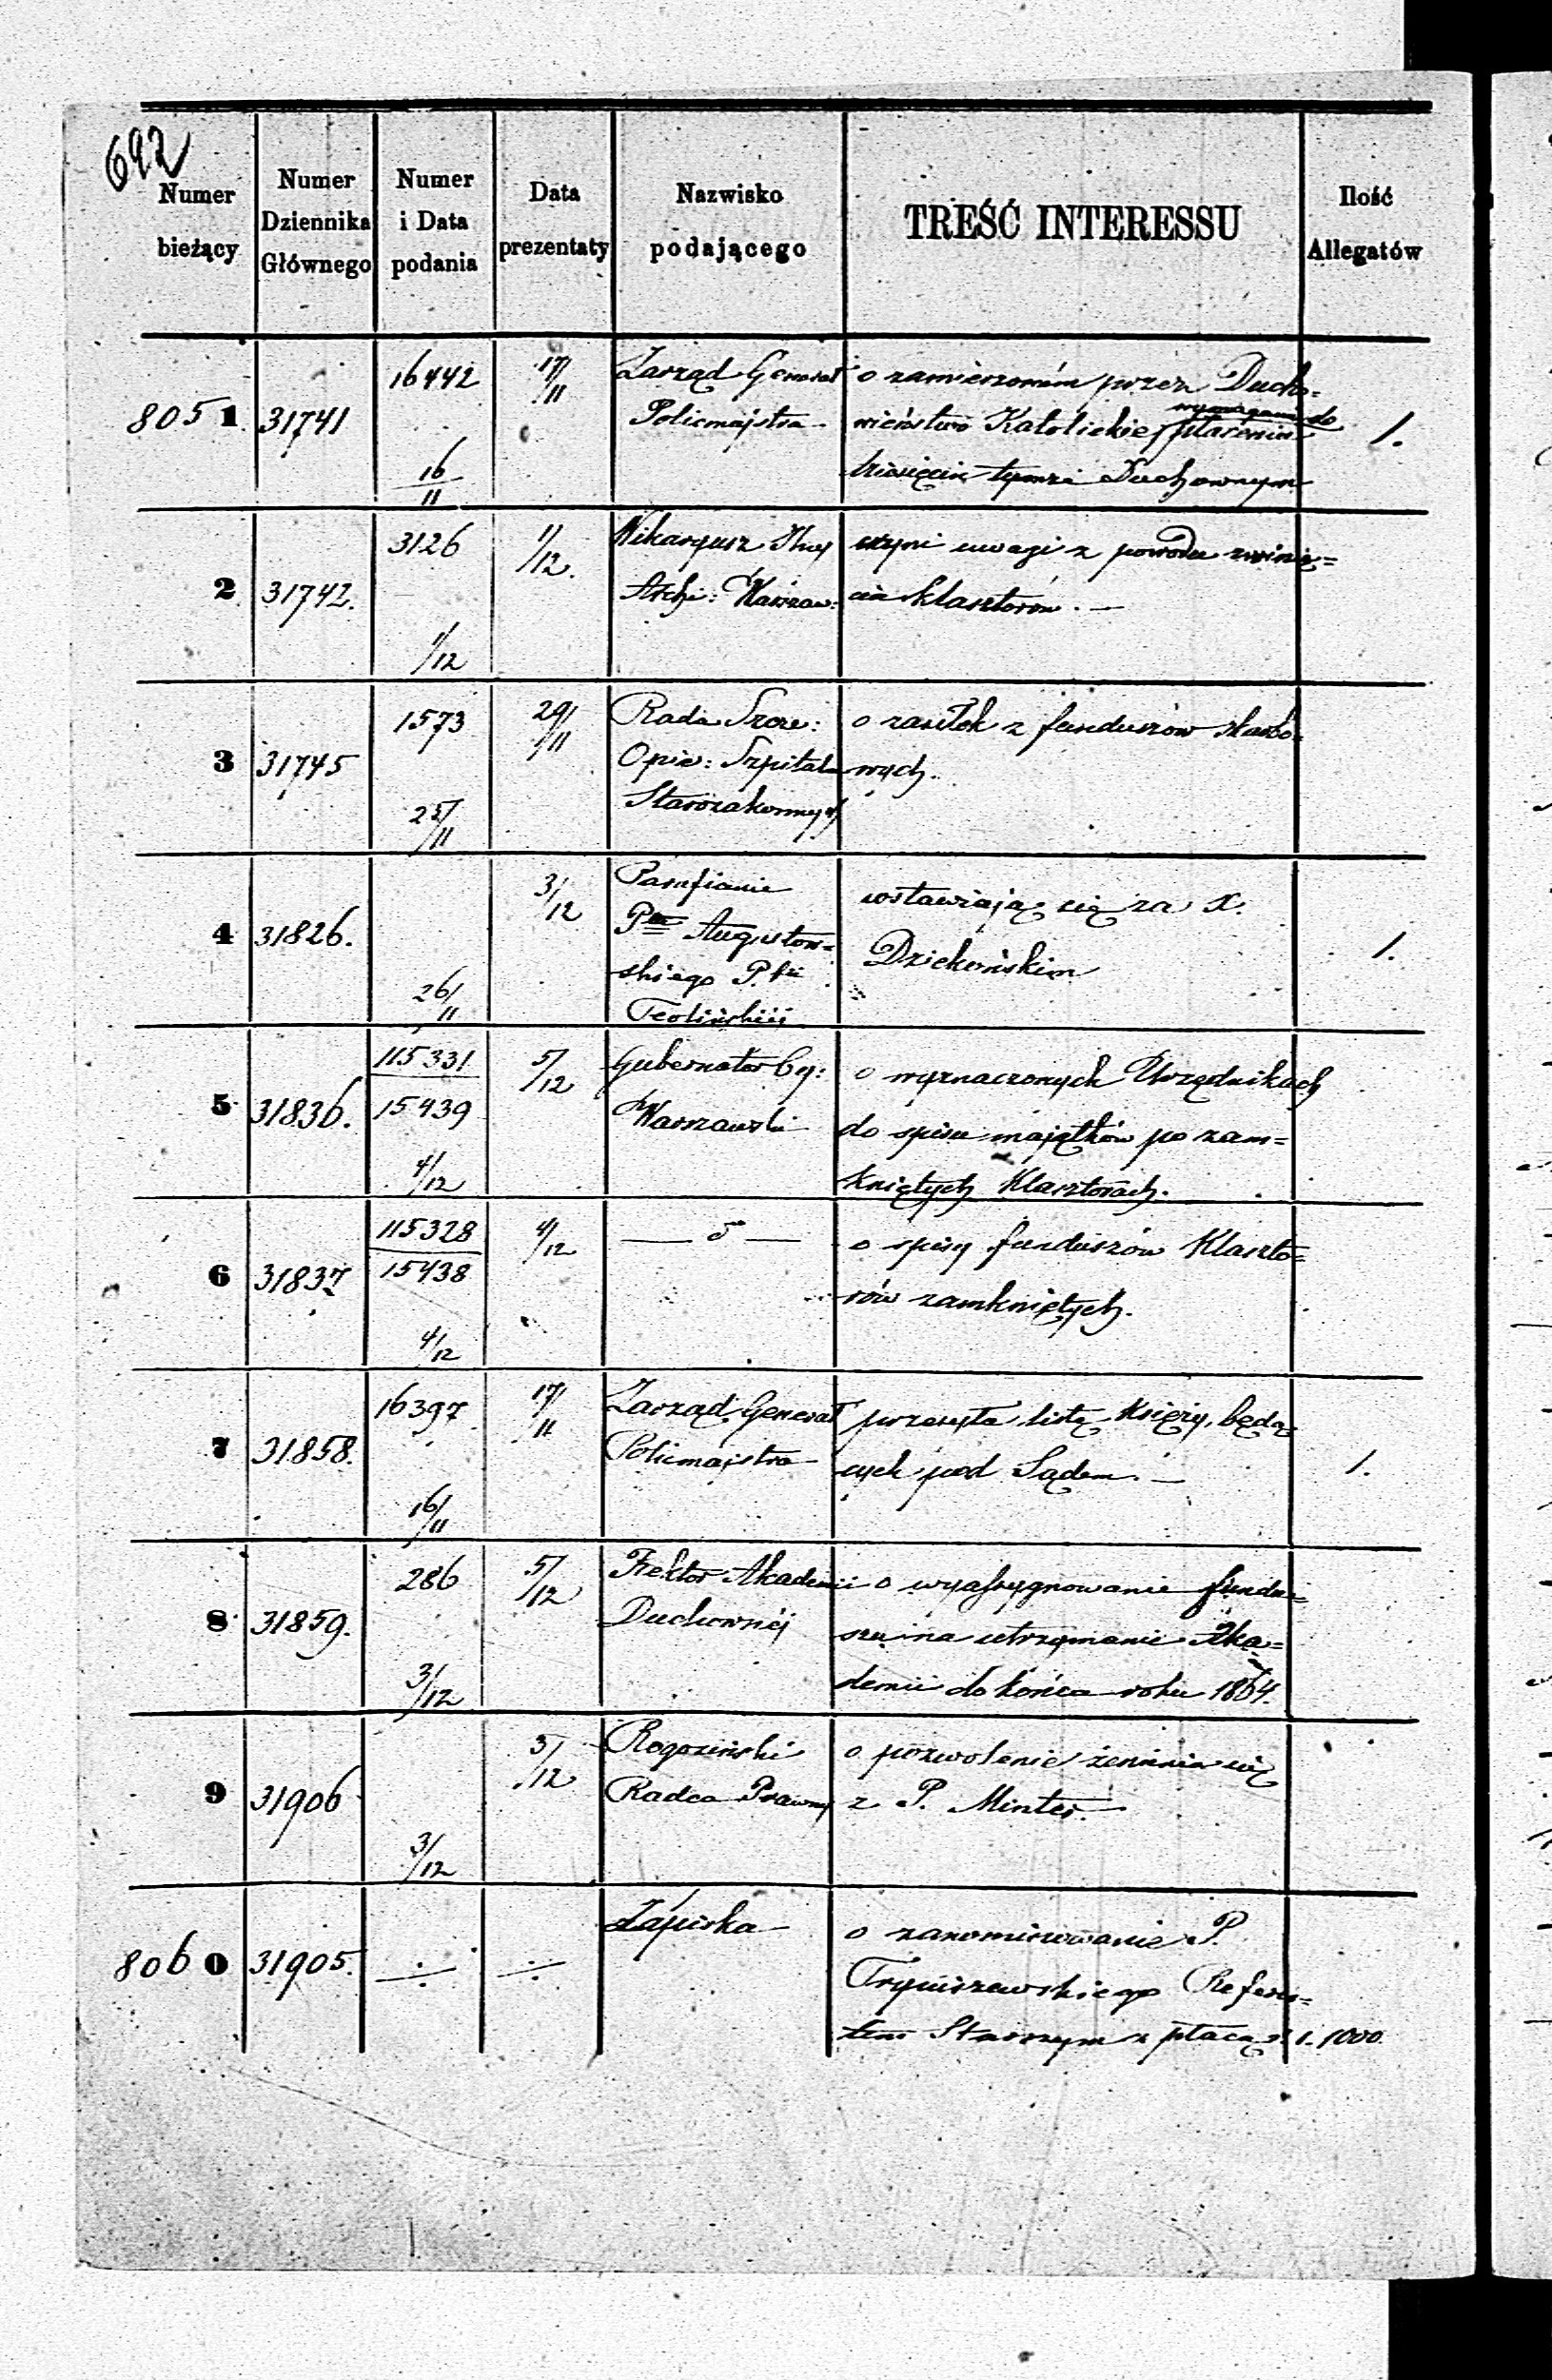 692
Numer bieżący
Numer Dziennika Głównego
Numer i Data podania
Data prezentaty
Nazwisko podającego
TREŚĆ INTERESSU
Ilość Allegatów
8051 31741 16442 17/11 Zarząd Generał o zamierzoném przez Ducho-
Policmajstra nieństwo Katolickie płacenia 1.
16/11 tymże Duchownym
2 31742. 3126 1/12. Wikaryusz Jlny czyni uwagi z powodu zwinię=
Archi: Warszaw: cia klasztorów. —
1/12
3 31745 1573 29/11 Rada Szcze: o zasiłek z funduszów skarbo-
Opie: Szpitala wych.
25/11 Starozakonnych
4 31826. 3/12 Parafianie wstawiają się za X.
Augustow=
skiego Dziekońskim 1.
26/11
5 31836. 115331 5/12 Gubernator Cy: o wyznaczonych Urzędnikach
15439 Warszawski do spisu majątków po zam=
4/12 kniętych Klasztorach.
6 31837 115328 4/12 — 5 — o spisy funduszów Klaszto=
15438 rów zamkniętych.
4/12
7 31858. 16397 17/11 Zarząd Generał przesyła listę Księży, będą=
Policmajstra cych pod Sądem. — 1.
16/11
8 31859. 286 5/12 Rektor Akademii o wyassygnowanie fundu=
Duchownéj szu na utrzymanie Aka=
3/12 demii do końca roku 1864.
9 31906 3/12 Rogoziński o pozwolenie żenienia się
Radca Prawny z P. Minter. —
3/12
8060 31905. ÷ ÷ Zapiska o zanominowanie P.
Referen=
tem Starszym z płacą r. 1000.